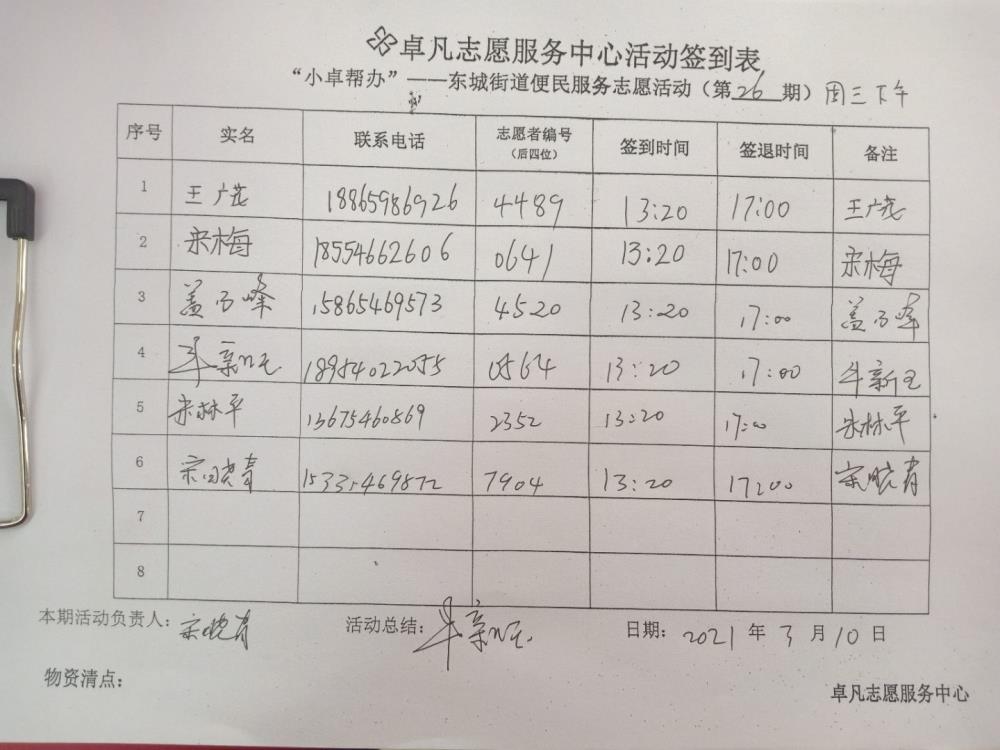 卓凡志愿服务中心活动签到表
“小卓帮办”——东城街道便民服务志愿活动（第26期）周三下午
序号 实名 联系电话 志愿者编号（后四位） 签到时间 签退时间 备注
1 王广茂 18865986926 4489 13:20 17:00 王广茂
2 宋梅 18554662606 0641 13:20 17:00 宋梅
3 盖乃峰 15865469573 4520 13:20 17:00 盖乃峰
4 新 18954022055 0564 13:20 17:00 新
5 宋林平 13675460869 2352 13:20 17:00 宋林平
6 宋晓青 7904 13:20 17:00 宋晓青
7
8
本期活动负责人：宋晓青 活动总结： 日期：2021年3月10日
物资清点： 卓凡志愿服务中心